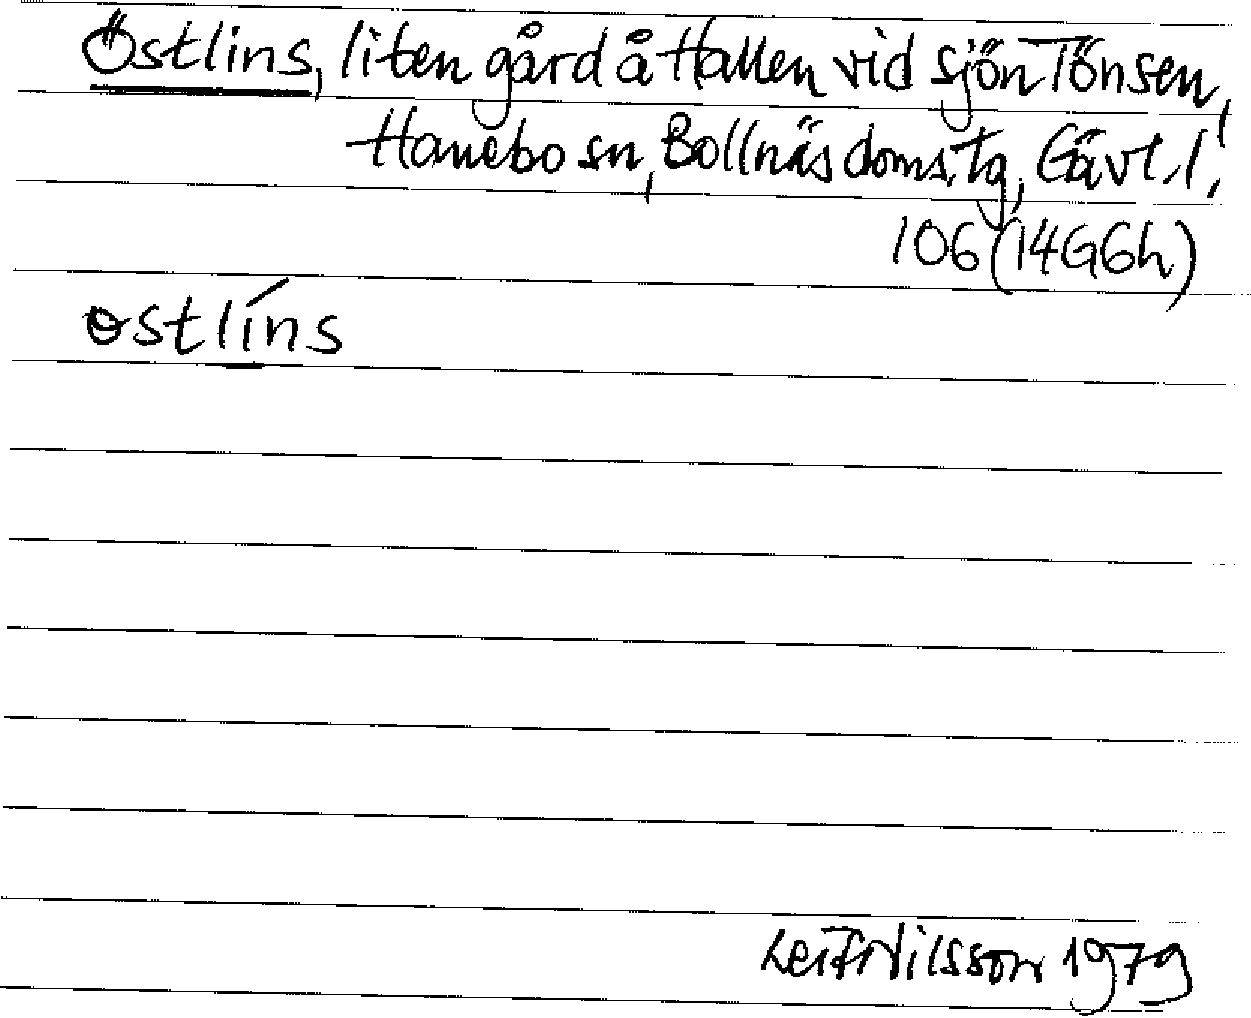 Östlins, liten gård å Hallen vid sjön Tönsen,
Hanebo sn, Bollnäs doms.tg, Gävl. l.
106 (14G6h)
ɵstlíns
Leif Nilsson 1979